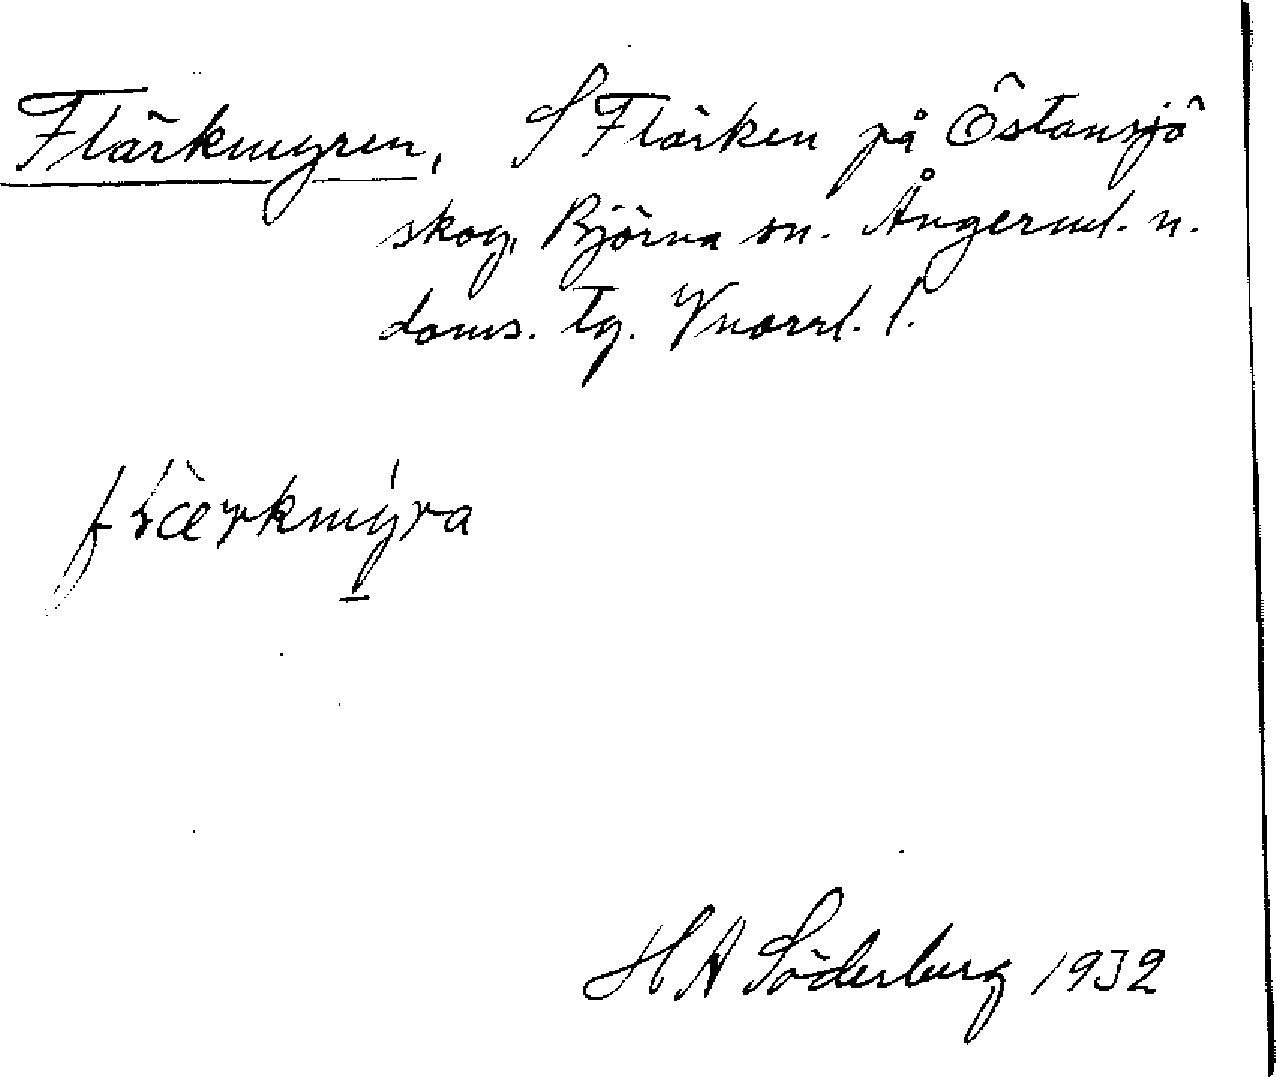 Flärkmyren, S Flärken på Östansjö
skog, Björna sn. Ångerml. n.
doms. tg. Vnorrl. l.
H A Söderberg 1932